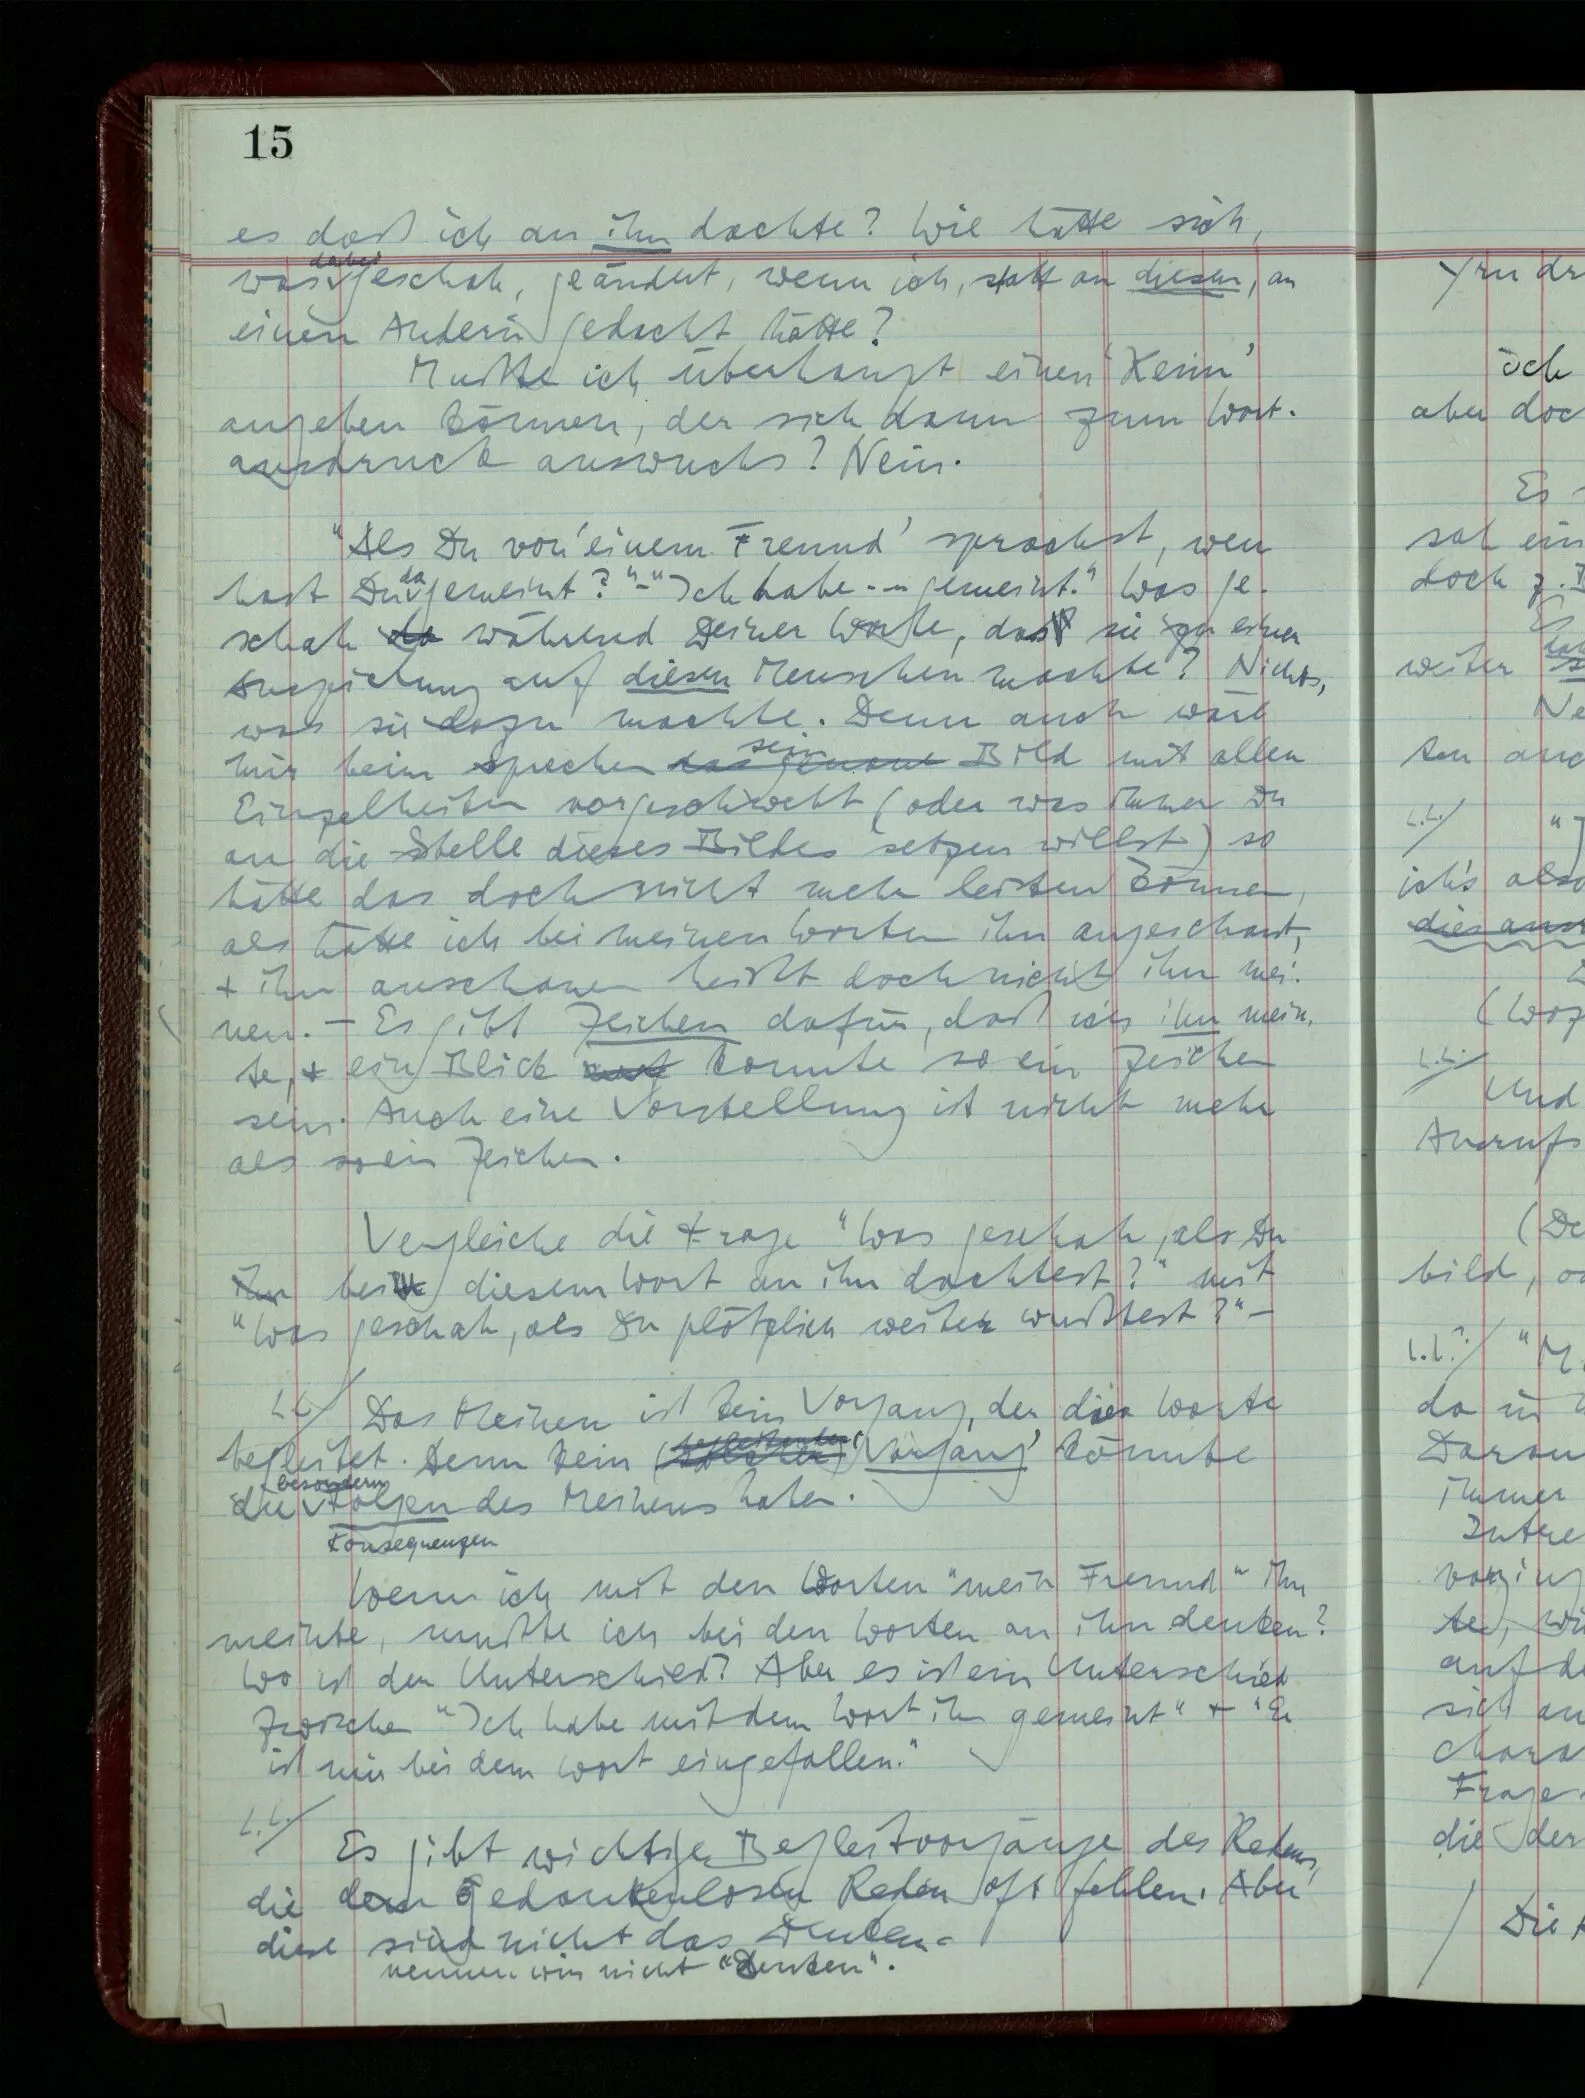 15
es daß ich an ihn dachte? Wie hätte sich,
was dabei geschah, geändert, wenn ich, statt an diesen, an
einen Andern gedacht hätte?
Mußte ich überhaupt einen 'Keim'
angeben können, der sich dann zum Wort-
ausdruck auswuchs? Nein.
"Als Du von 'einem Freund' sprachst, wen
hast Du da gemeint?" – "Ich habe ... gemeint." Was ge-
schah da während Deiner Worte, das sie zu einer
Anspielung auf diesen Menschen machte? Nichts,
was sie dazu machte. Denn auch wäre
mir beim sprechen das genaue sein Bild mit allen
Einzelheiten vorgeschwebt (oder was immer Du
an die Stelle dieses Bildes setzen willst) so
hätte das doch nicht mehr leisten können,
als hätte ich bei meinen Worten ihn angeschaut,
+ ihn anschauen heißt doch nicht ihn mei-
nen. – Es gibt Zeichen dafür, daß ich ihn mein-
te, + ein Blick auf konnte so ein Zeichen
sein. Auch eine Vorstellung ist nicht mehr
als so ein Zeichen.
Vergleiche die Frage "Was geschah, als Du
ihn bei diesem Wort an ihn dachtest?" mit
"Was geschah, als Du plötzlich weiter wußtest?" –
Das Meinen ist kein Vorgang, der die Worte
begleitet. Denn kein 'Vorgang' könnte
die besondern Folgen des Meinens haben.
Konsequenzen
Wenn ich mit den Worten "mein Freund" ihn
meinte, mußte ich bei den Worten an ihn denken?
Wo ist der Unterschied? Aber es ist ein Unterschied
zwischen "Ich habe mit dem Wort ihn gemeint" + "Er
ist mir bei dem Wort eingefallen."
Es gibt wichtige Begleitvorgänge des Redens,
die dem gedankenlosen Reden oft fehlen. Aber
diese sind nicht das Denken.
nennen wir nicht "Denken".
ich
aber doc
Es
sah ein
doch z.
weiter
ich's also
Und
Anrufs
bild,
"M
da
immer
auf de
sich an
Frage
die der
Die